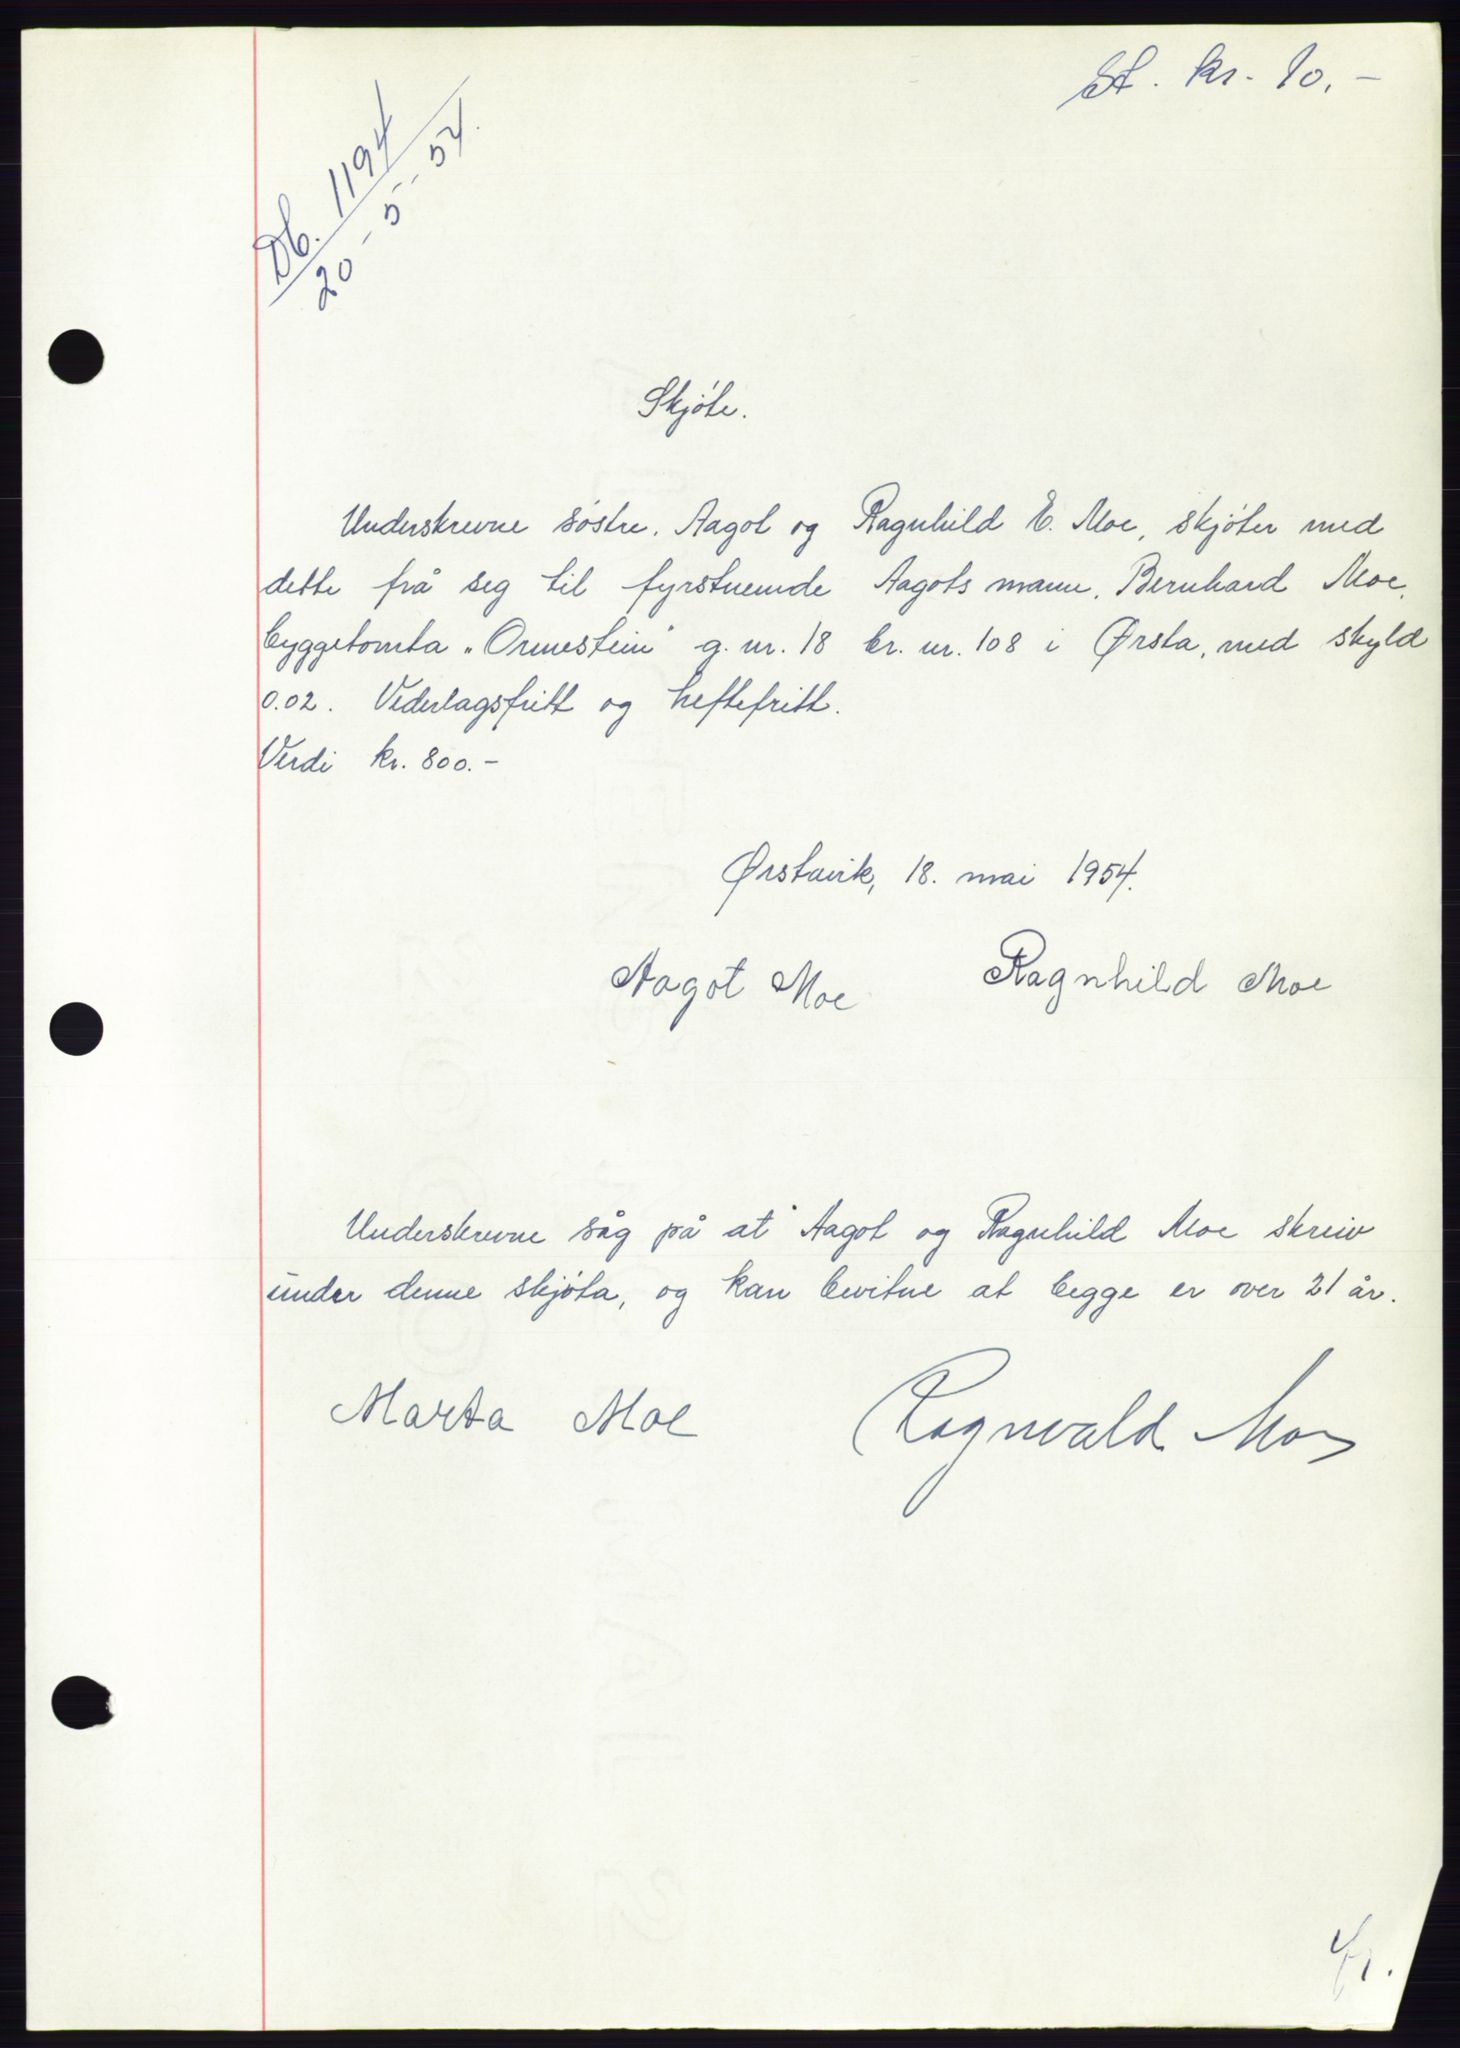 St. kr. 10.-
Db. 1194
20 - 5 - 54.
Skjøte.
Underskrevne søstre, Aagot og Ragnhild E. Moe, skjøter med
dette frå seg til fyrstnemde Aagots mann, Bernhard Moe,
byggetomta „Ormestein" g. nr. 18 br. nr. 108 i Ørsta, med skyld
0.02. Vederlagsfritt og heftefritt.
Verdi kr. 800.-
Ørstavik, 18. mai 1954.
Aagot Moe Ragnhild Moe
Underskrevne såg på at Aagot og Ragnhild Moe skreiv
under denne skjøta, og kan bevitne at begge er over 21 år.
Marta Moe Ragnvald Moe